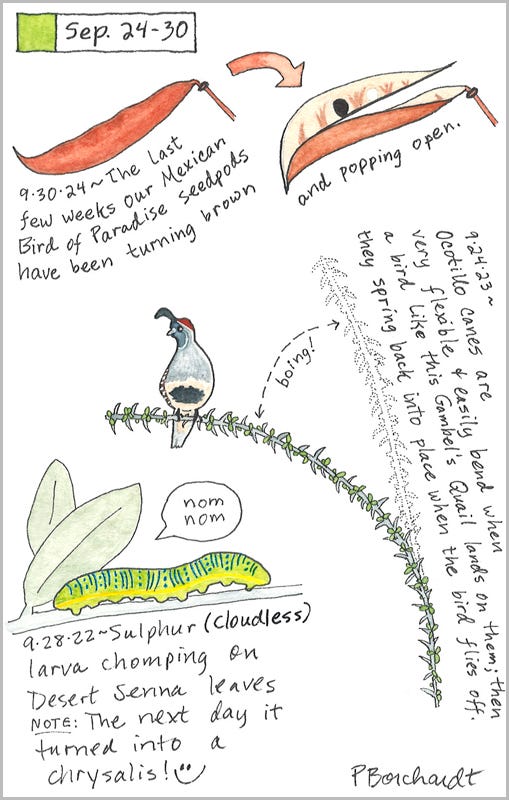 Sep. 24-30
9.30.24~The Last
few weeks our Mexican
Bird of Paradise seedpods
have been turning brown
and popping open.
9.24.23~
Ocotillo canes are
very flexible & easily bend when
a bird like this Gambel's Quail lands on them; then
they spring back into place when the bird flies off.
boing!
nom
nom
9.28.22~Sulphur (Cloudless)
larva chomping on
Desert Senna leaves
NOTE: The next day it
turned into a
chrysalis!
PBorchardt